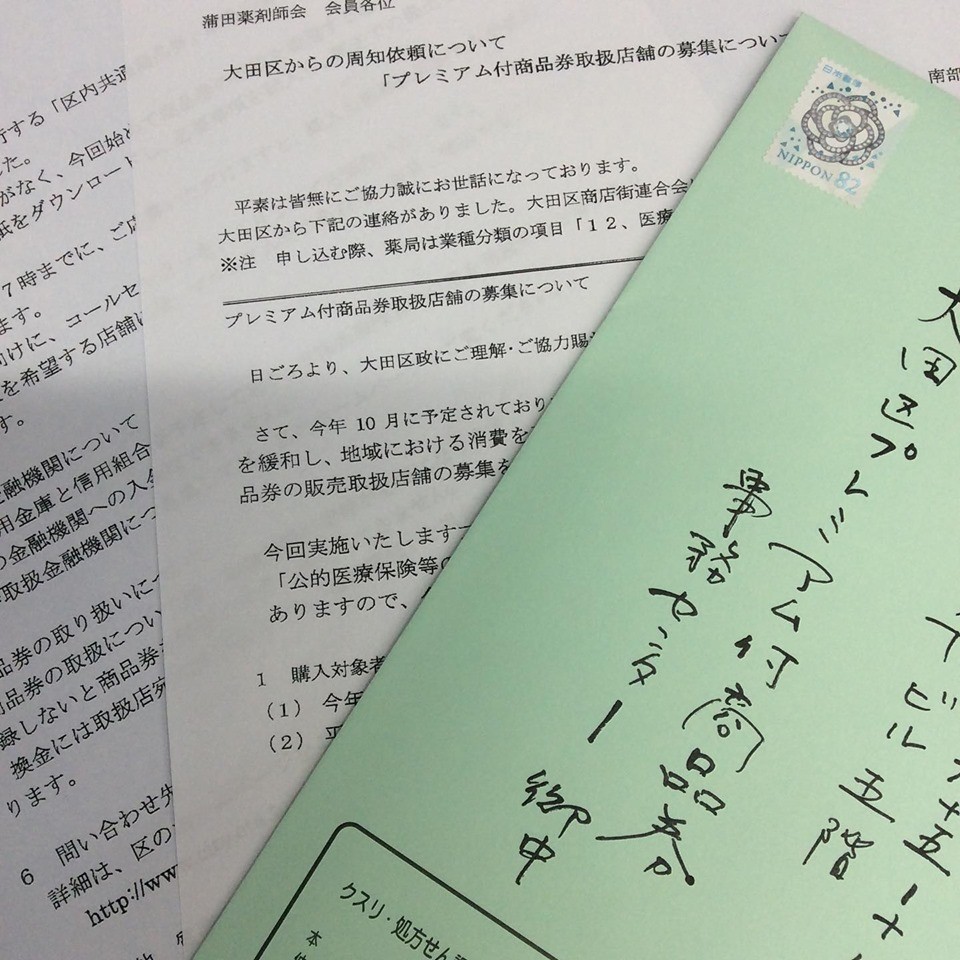 蒲田薬剤師会　会員各位
大田区からの周知依頼について
「プレミアム付商品券取扱店舗の募集につい
南部
平素は皆無にご協力誠にお世話になっております。
大田区から下記の連絡がありました。大田区商店街連合会
※注　申し込む際、薬局は業種分類の項目「１２、医療
プレミアム付商品券取扱店舗の募集について
日ごろより、大田区政にご理解・ご協力賜
さて、今年 10 月に予定されており
を緩和し、地域における消費を
品券の販売取扱店舗の募集を
今回実施いたします
「公的医療保険等の
ありますので、
1　購入対象者
（1）　今年
（2）
行する「区内共通
した。
がなく、今回始
紙をダウンロード
７時までに、ご応
ます。
向けに、コールセ
を希望する店舗に
す。
金融機関について
用金庫と信用組合
の金融機関への入金
取扱金融機関につ
品券の取り扱いに
商品券の取扱につい
録しないと商品券
換金には取扱店宛
ります。
6　問い合わせ先
詳細は、区の
http://ww
日本郵便
NIPPON 82
ビル五階
大田区プレミアム付商品券
事務センター　御中
クスリ・処方せん
本